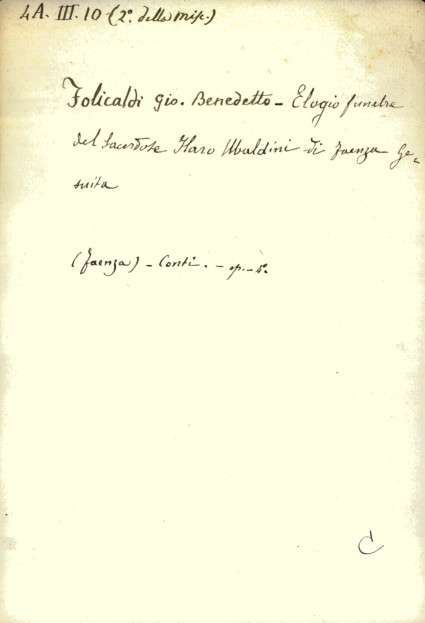 4A. III. 10 (2º. della misc.)
Folicaldi Gio. Benedetto - Elogio funebre
del Sacerdote Ilaro Ubaldini di Faenza Ge-
suita
(Faenza) - Conti. - op. - 4º.
C